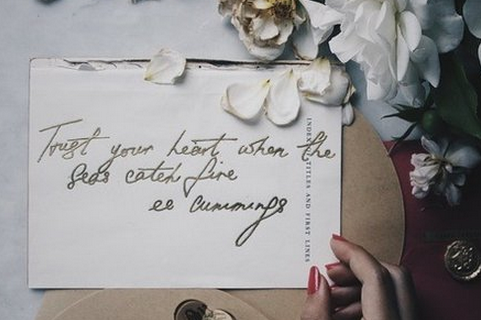 Trust your heart when the
seas catch fire
ee cummings
INDEX TITLES AND FIRST LINES